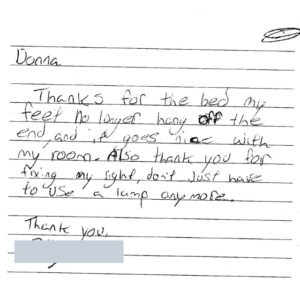 Donna
Thanks for the bed my
feet no longer hang off the
end, and it goes nice with
my room. Also thank you for
fixing my light, don't Just have
to use a lamp anymore.
Thank you,